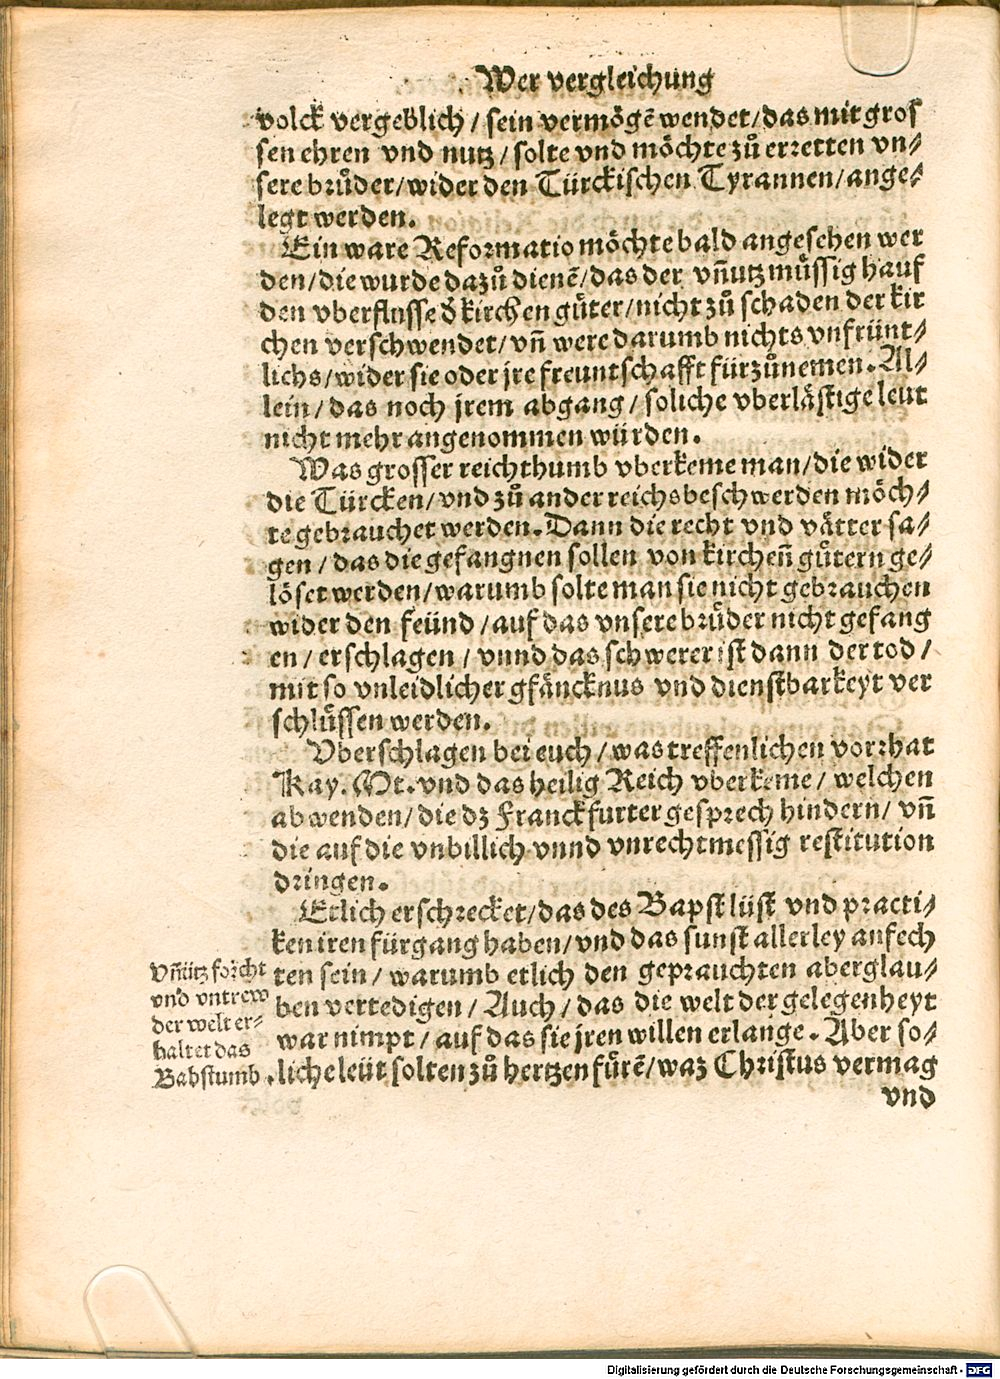 Wer vergleichung
volck vergeblich / sein vermögẽ wendet / das mit gros
sen ehren vnd nutz / solte vnd möchte zů erretten vn⸗
sere brůder / wider den Türckischen Tyrannen / ange⸗
legt werden.
Ein ware Reformatio möchte bald angesehen wer
den / die wurde dazů dienẽ / das der vñutz müssig hauf
den vberflusse đ kirchen gůter / nicht zů schaden der kir
chen verschwendet / vñ were darumb nichts vnfrünt⸗
lichs / wider sie oder jre freuntschafft fürzůnemen. Al⸗
lein / das noch jrem abgang / soliche vberlästige leut
nicht mehr angenommen würden.
Was grosser reichthumb vberkeme man / die wider
die Türcken / vnd zů ander reichsbeschwerden möch⸗
te gebrauchet werden. Dann die recht vnd vätter sa⸗
gen / das die gefangnen sollen von kircheñ gůtern ge⸗
löset werden / warumb solte man sie nicht gebrauchen
wider den feünd / auf das vnsere brůder nicht gefang
en / erschlagen / vnnd das schwerer ist dann der tod /
mit so vnleidlicher gfäncknus vnd dienstbarkeyt ver
schlüssen werden.
Vberschlagen bei euch / was treffenlichen vorrhat
Kay. Mt. vnd das heilig Reich vberkeme / welchen
abwenden / die dz Franckfurter gesprech hindern / vñ
die auf die vnbillich vnnd vnrechtmessig restitution
dringen.
Etlich erschrecket / das des Bapst lüst vnd practi⸗
ken iren fürgang haben / vnd das sunst allerley anfech
ten sein / warumb etlich den geprauchten aberglau⸗
ben vertedigen / Auch / das die welt der gelegenheyt
war nimpt / auf das sie jren willen erlange. Aber so⸗
liche leüt solten zů hertzen fürẽ / waz Christus vermag
vnd
Vñütz forcht
vnd vntrew
der welt er⸗
haltet das
Babstumb.
Digitalisierung gefördert durch die Deutsche Forschungsgemeinschaft - DFG